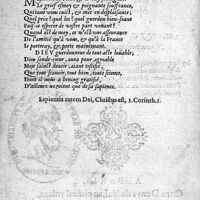 M
Le grief esmoy & poignante souffrance,
Qui tant vous cuict, & met en desplaisance,
Quel pris? quel los? quel guerdon bien-seant
Puis-ie esperer de vostre part venant?
Quand est de moy, ce m'est vne asseurance
De l'amitié qu'à vous, & qu'à la France
Ie porteray, & porte maintenant.
DIEV guerdonneur de tout acte loüable,
Dieu sonde-cœur, aura pour agreable
Mon sainct deuoir, ayant
Que tout sçauoir, tout bien, toute science,
Dont il nous a benin gratifié,
D'ailleurs ne vient que de sa sapience.
Sapientia autem Dei, Christus est, 1. Corinth. 1.